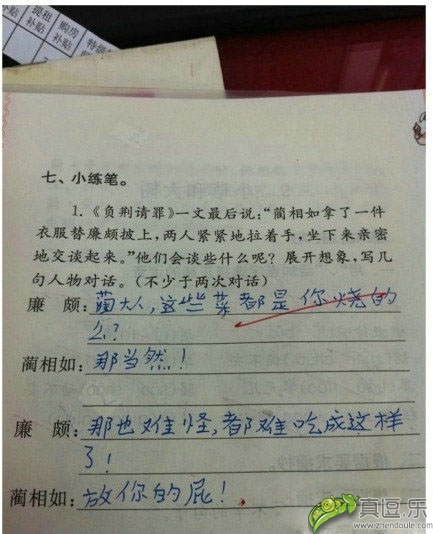 提租
补贴
购房
补贴
特级
七、小练笔。
1.《负荆请罪》一文最后说：“蔺相如拿了一件
衣服替廉颇披上，两人紧紧地拉着手，坐下来亲密
地交谈起来。”他们会谈些什么呢？展开想象，写几
句人物对话。（不少于两次对话）
廉 颇：蔺大人，这些菜都是你烧的
么？
蔺相如：那当然！
廉 颇：那也难怪，都难吃成这样
了！
蔺相如：放你的屁！
真逗.乐
www.zhendoule.com